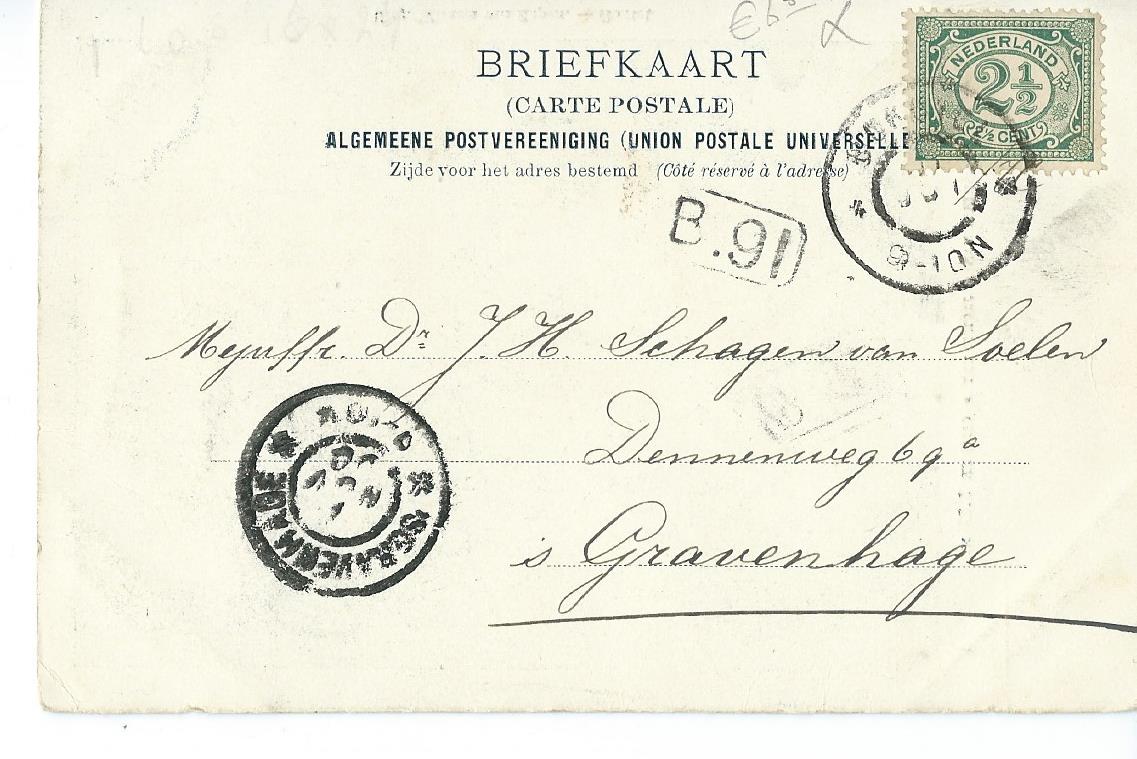 BRIEFKAART
(CARTE POSTALE)
ALGEMEENE POSTVEREENIGING (UNION POSTALE UNIVERSELLE
Zijde voor het adres bestemd (Côté réservé à l'adresse)
NEDERLAND
2 1/2
(2 1/2 CENT)
9-10N
B.91
Mejuffr. Dr J. H. Schagen van Soelen
Dennenweg 69a
s Gravenhage
'SGRAVENHAGE